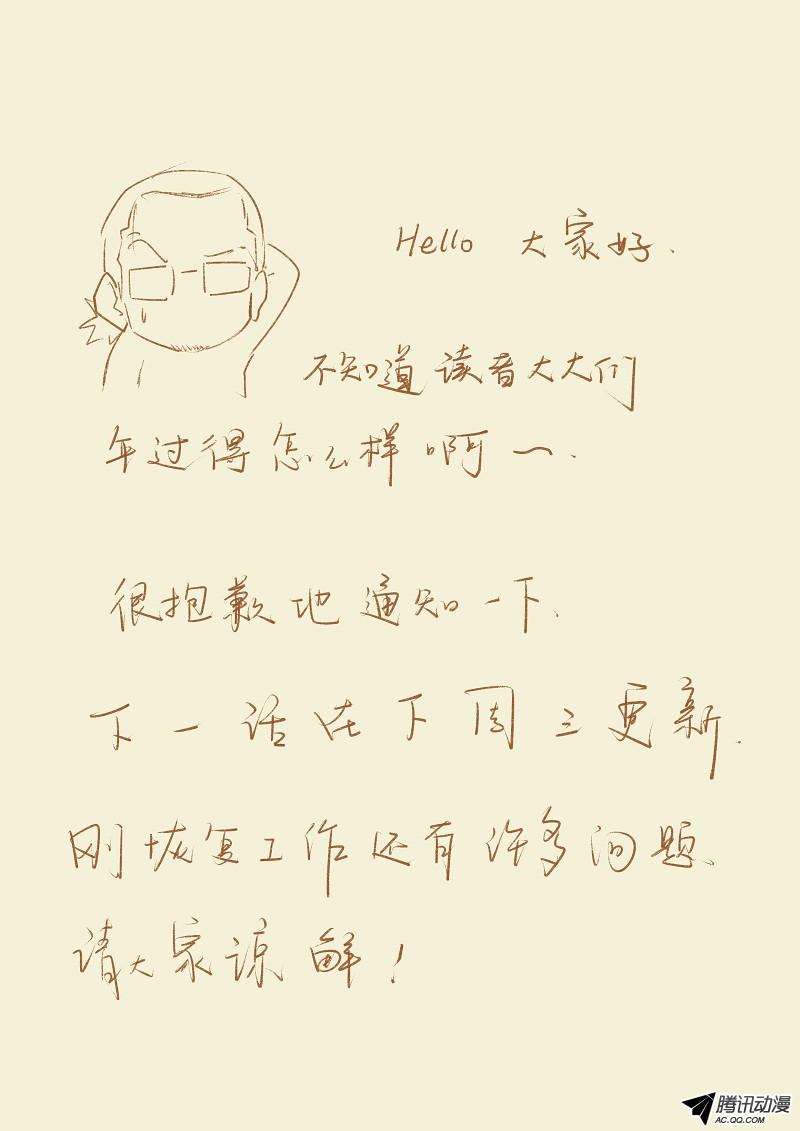 Hello 大家好.
不知道读者大大们
年过得怎么样啊～.
很抱歉地通知一下.
下一话在下周三更新.
刚恢复工作还有许多问题.
请大家谅解！
腾讯动漫
AC.QQ.COM